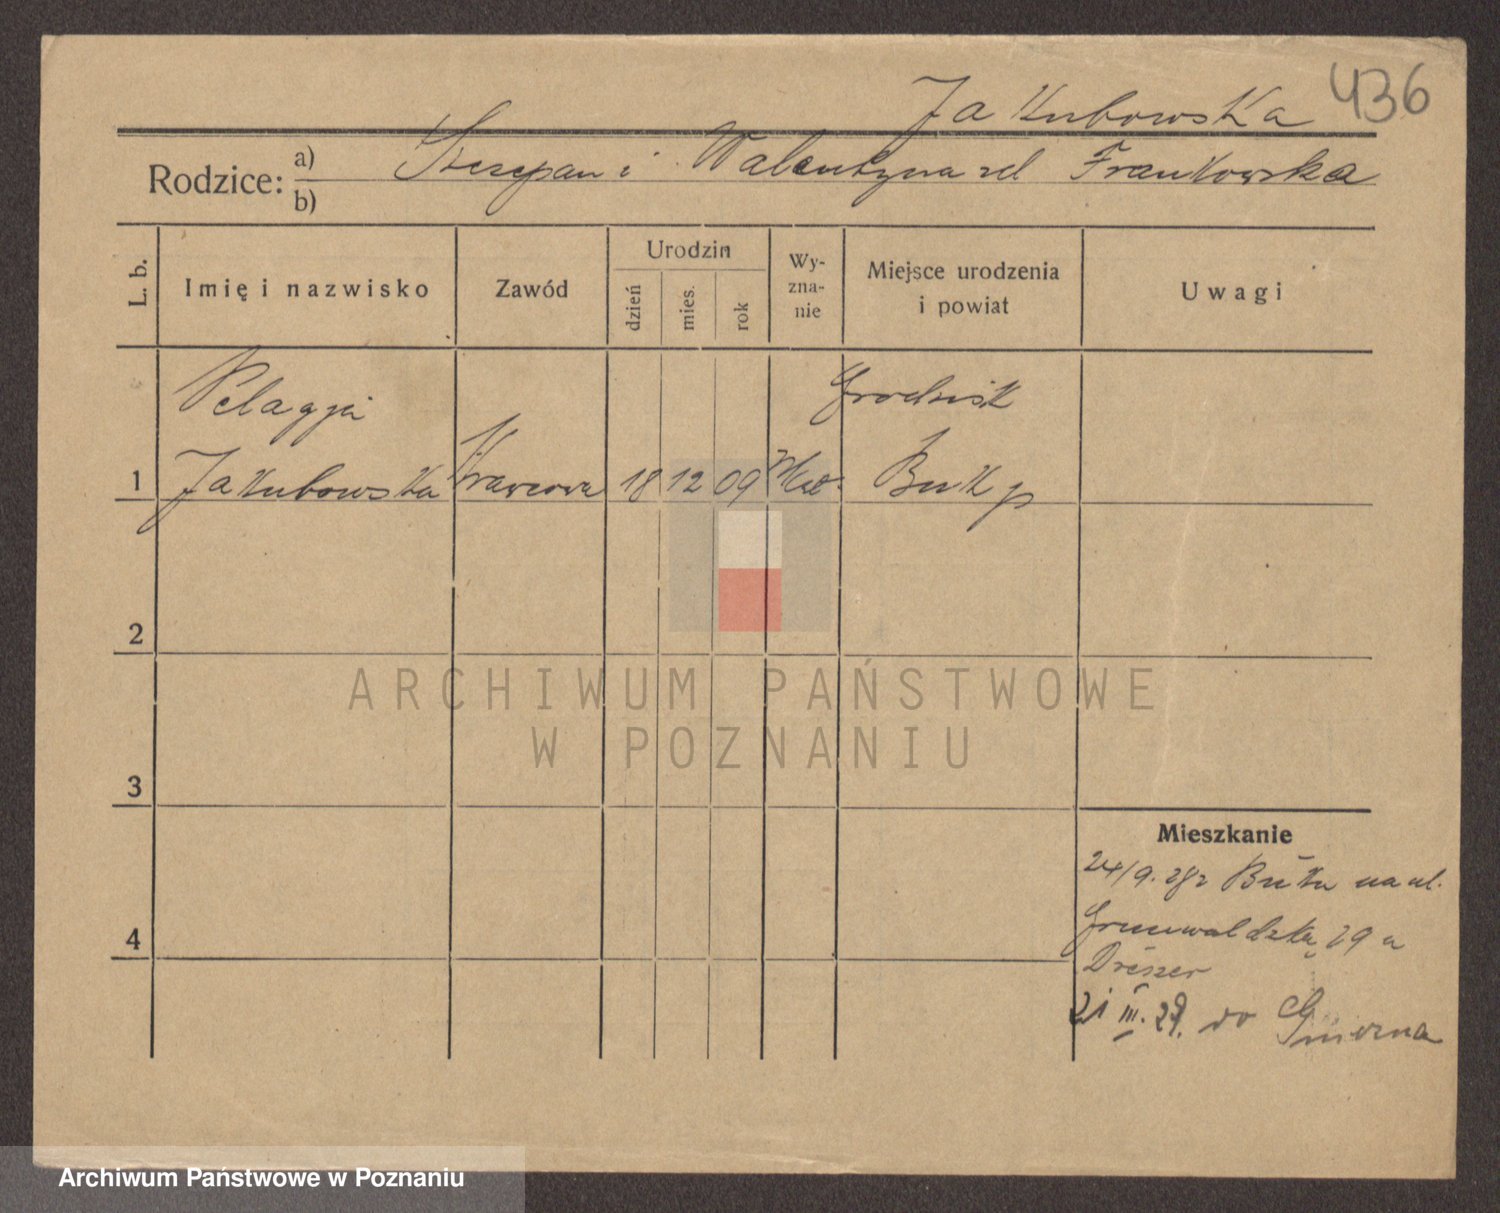 436
Jakubowska
Rodzice: a) Szczepan i Walentyna zd Frankowska
b)
L. b. Imię i nazwisko Zawód Urodzin dzień mies. rok Wyznanie Miejsce urodzenia i powiat Uwagi
Pelagja Grodzisk
1 Jakubowska Krawcowa 18 12 09 Kat. Buk p
2
ARCHIWUM PAŃSTWOWE
W POZNANIU
3
Mieszkanie
24/9.28 z Buku na ul.
4 Grunwaldzką 29 u
Drészer
21 III. 29. do Gniezna
Archiwum Państwowe w Poznaniu